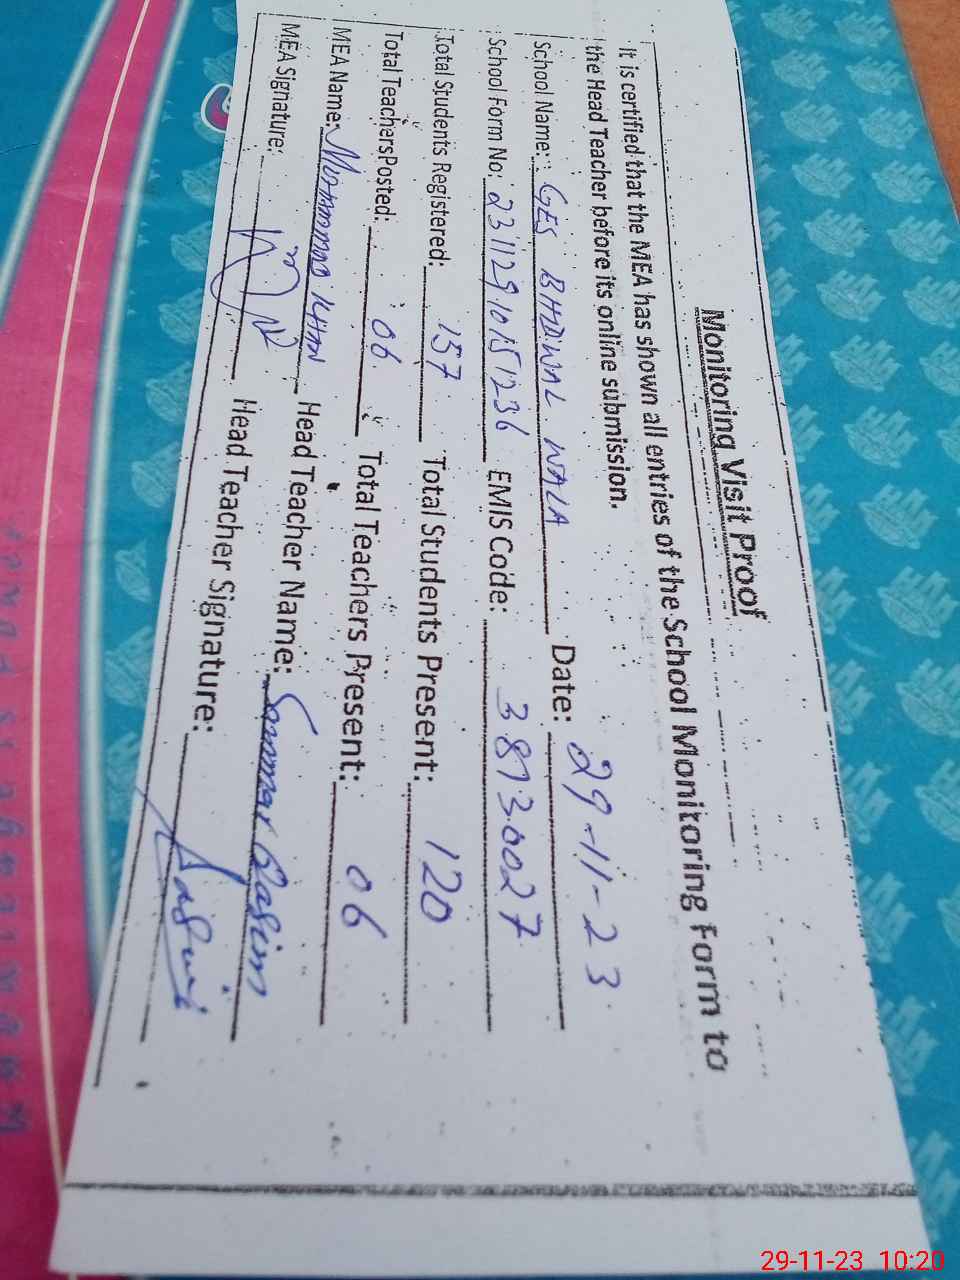 Monitoring Visit Proof
It is certified that the MEA has shown all entries of the School Monitoring Form to
the Head Teacher before its online submission.
School Name: GES BHDWAL WALA Date: 29-11-23
School Form No: 23112910151236 EMIS Code: 38730027
Total Students Registered: 157 Total Students Present: 120
Total Teachers Posted: 06 Total Teachers Present: 06
MEA Name: Mohammad Khan Head Teacher Name: Sammar Qasim
MEA Signature: Head Teacher Signature: Qasim
29-11-23 10:20